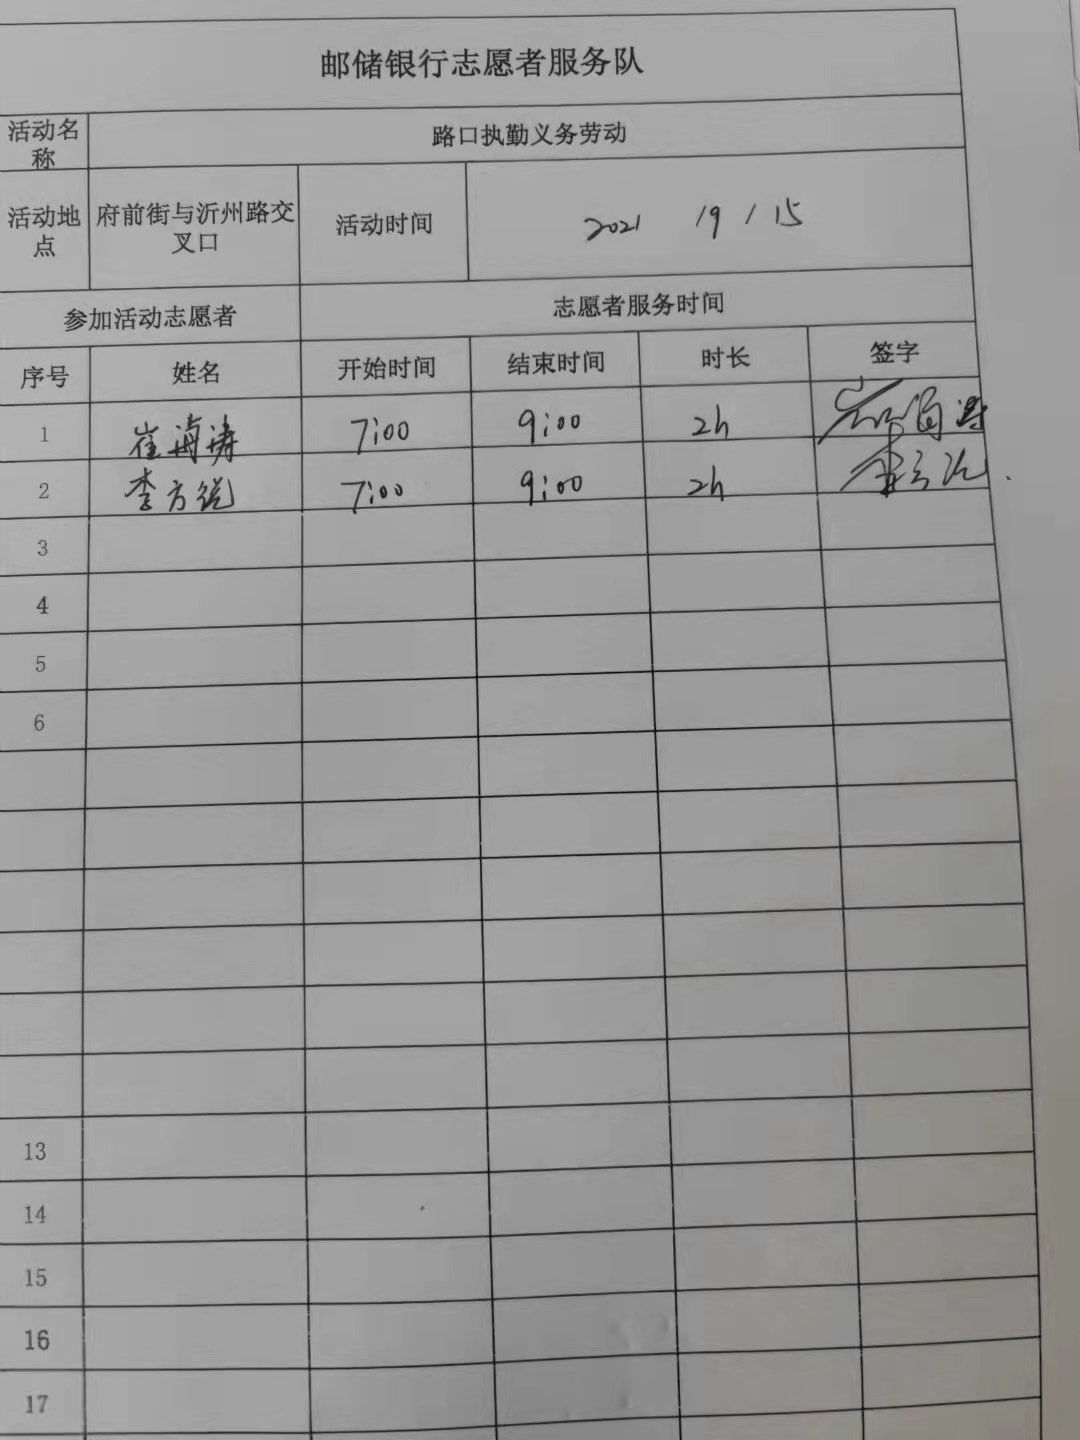 邮储银行志愿者服务队
活动名称 路口执勤义务劳动
活动地点 府前街与沂州路交叉口 活动时间 2021 /9 / 15
参加活动志愿者 志愿者服务时间
序号 姓名 开始时间 结束时间 时长 签字
1 崔海涛 7:00 9:00 2h
2 李方锐 7:00 9:00 2h
3
4
5
6
13
14
15
16
17